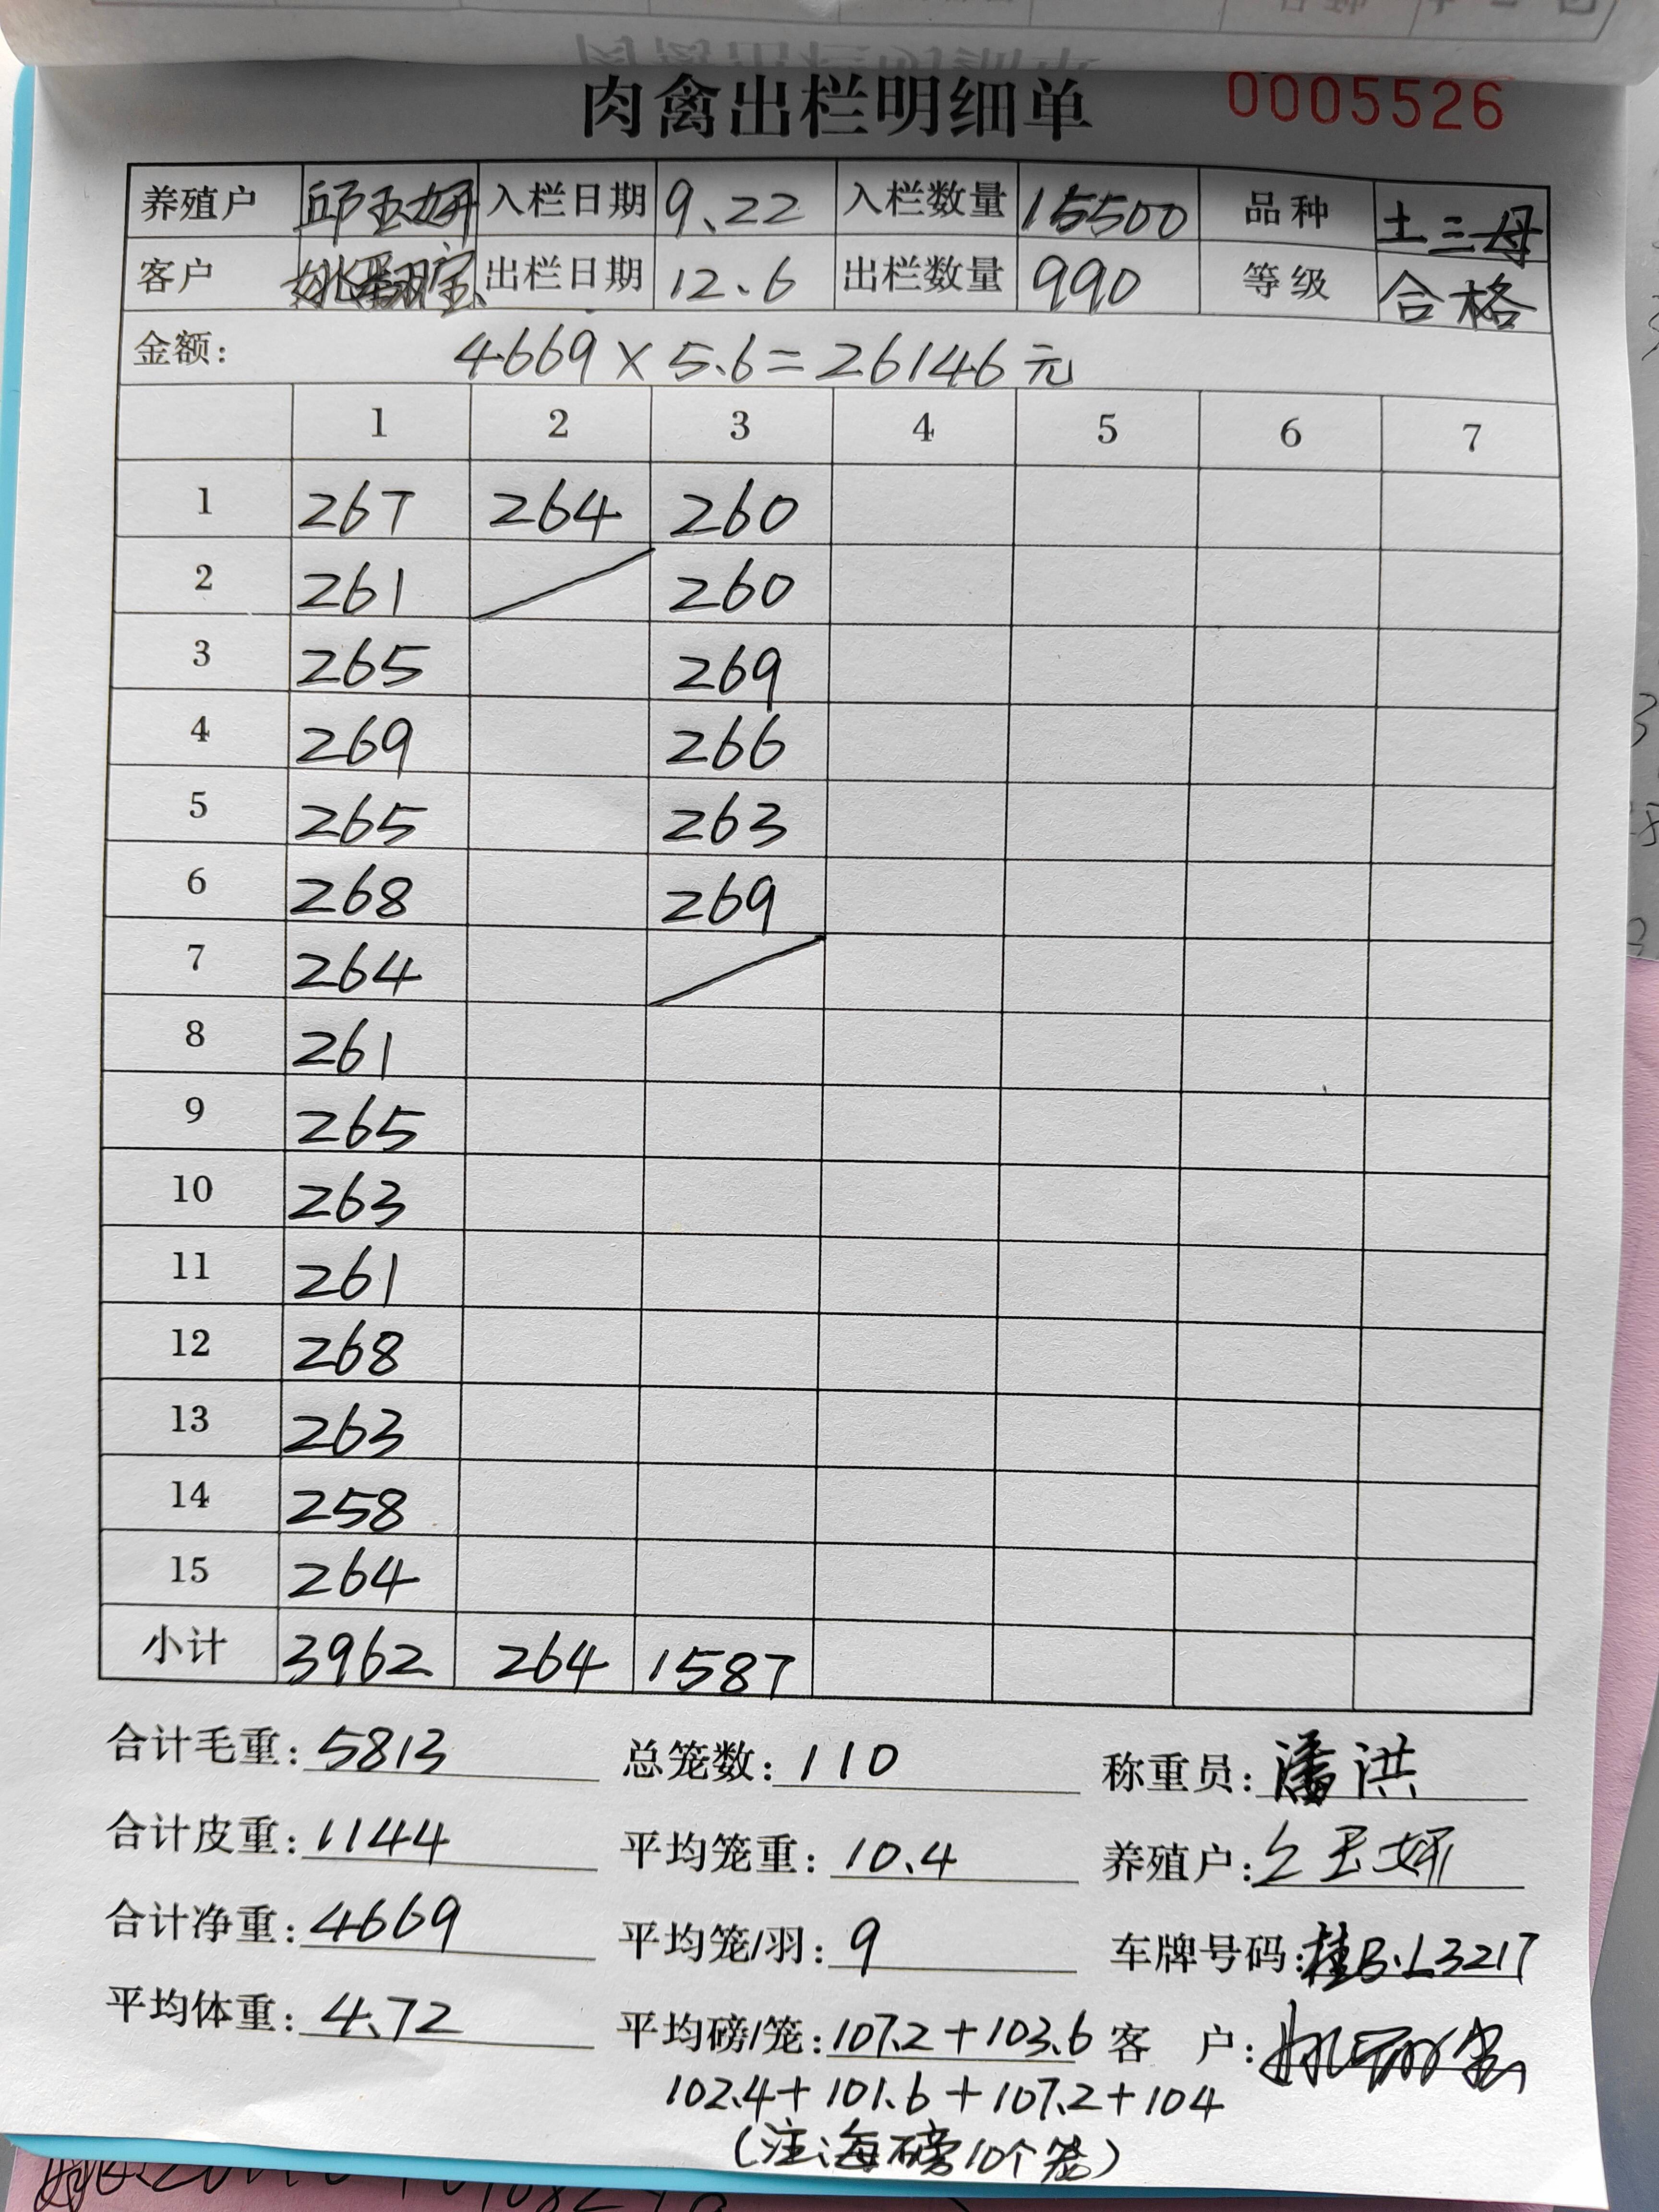 肉禽出栏明细单 0005526
养殖户 邱玉妍 入栏日期 9.22 入栏数量 15500 品种 土三母
客户 姚翠宝 出栏日期 12.6 出栏数量 990 等级 合格
金额: 4669×5.6=26146元
1 2 3 4 5 6 7
1 267 264 260
2 261 260
3 265 269
4 269 266
5 265 263
6 268 269
7 264
8 261
9 265
10 263
11 261
12 268
13 263
14 258
15 264
小计 3962 264 1587
合计毛重: 5813 总笼数: 110 称重员: 潘洪
合计皮重: 1144 平均笼重: 10.4 养殖户: 玉妍
合计净重: 4669 平均笼/羽: 9 车牌号码: 桂B.L3217
平均体重: 4.72 平均磅/笼: 107.2+103.6 客 户:
102.4+101.6+107.2+104
(注:每磅10个笼)